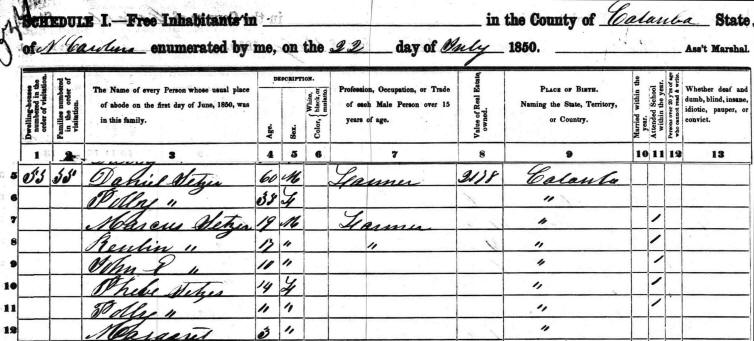 SCHEDULE I.—Free Inhabitants in in the County of Catawba State
of N Carolina enumerated by me, on the 22 day of July 1850. Ass't Marshal.
Dwelling-houses numbered in the order of visitation.
Families numbered in the order of visitation.
The Name of every Person whose usual place of abode on the first day of June, 1850, was in this family.
DESCRIPTION.
Age.
Sex.
Color, White, black, or mulatto.
Profession, Occupation, or Trade of each Male Person over 15 years of age.
Value of Real Estate owned.
PLACE OF BIRTH. Naming the State, Territory, or Country.
Married within the year.
Attended School within the year.
Persons over 20 y'rs of age who cannot read & write.
Whether deaf and dumb, blind, insane, idiotic, pauper, or convict.
1 2 3 4 5 6 7 8 9 10 11 12 13
5 53 55 Daniel Setzer 60 M Farmer Catawba
6 Polly " 38 F "
7 Marcus Setzer 19 M Farmer " /
8 Reubin " 17 " " " /
9 John " 10 " " /
10 Phebe Setzer 14 F " /
11 Polly " 11 " " /
12 Margaret 3 " "